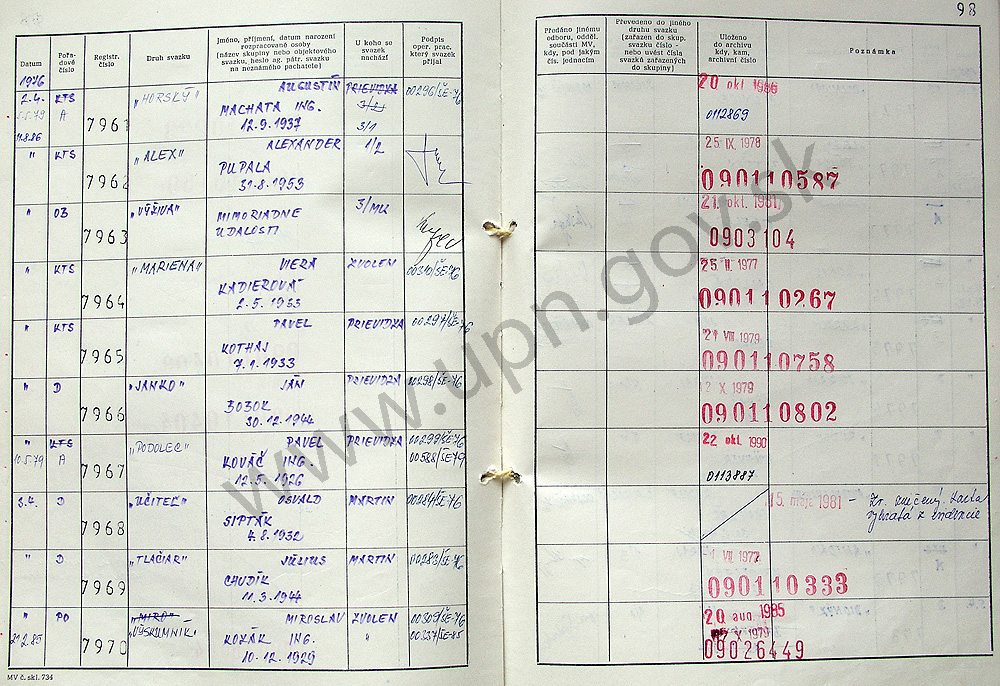 98
Datum
Pořa-
dové
číslo
Registr.
číslo
Druh svazku
Jméno, příjmení, datum narození
rozpracované osoby
(název skupiny nebo objektového
svazku, heslo ag. pátr. svazku
na neznámého pachatele)
U koho se
svazek
nachází
Podpis
oper. prac.
který svazek
přijal
Předáno jinému
odboru, odděl.
součásti MV,
kdy, pod jakým
čís. jednacím
Převedeno do jiného
druhu svazku
(zařazen do skup.
svazku číslo -
nebo uvést čísla
svazků zařazených
do skupiny)
Uloženo
do archivu
kdy, kam,
archivní číslo
Poznámka
1976
2.4. KTS 7961 "HORSKÝ" AUGUSTÍN PRIEVIDZA 00296/ŠE-76 20 okt 1986
5.5.79 A MACHATA ING. 3/1 0112869
11.8.86 12.9.1937 3/1
" KTS 7962 "ALEX" ALEXANDER 1/2 25 IX. 1978
PUPALA 090110587
31.8.1953
" OZ 7963 "VÝŽIVA" MIMORIADNE 3/MU 21. okt. 1981
UDALOSTI 0903104
" KTS 7964 "MARIENA" VIERA ZVOLEN 00310/ŠE-76 1977
KADIEROVÁ 090110267
2.5.1953
" KTS 7965 PAVEL PRIEVIDZA 00297/ŠE-76 21 VIII 1979
KOTHAJ 090110758
7.1.1933
" D 7966 "JANKO" JÁN PRIEVIDZA 00298/ŠE-76 X 1979
BOBOK 090110802
30.12.1944
" KTS 7967 "PODOLEC" PAVEL PRIEVIDZA 00299/ŠE-76 22 okt. 1990
10.5.79 A KOVÁČ ING. 00528/ŠE-79 0113887
12.5.1926
3.4. D 7968 "UČITEĽ" OSVALD MARTIN 00284/ŠE-76 15. mája 1981 - Zv. zničený karta
SIPTÁK vybratá z evidencie
4.8.1932
" D 7969 "TLAČIAR" JÚLIUS MARTIN 00283/ŠE-76 VII 1977
CHUDÍK 090110333
11.3.1944
" PO 7970 "MIRO" MIROSLAV ZVOLEN 00305/ŠE-76 20 aug 1985
2.85 "VÝSKUMNIK" KOZÁK ING. " 00337/ŠE-85 X 1979
10.12.1929 09026449
MV č. skl. 734
www.upn.gov.sk